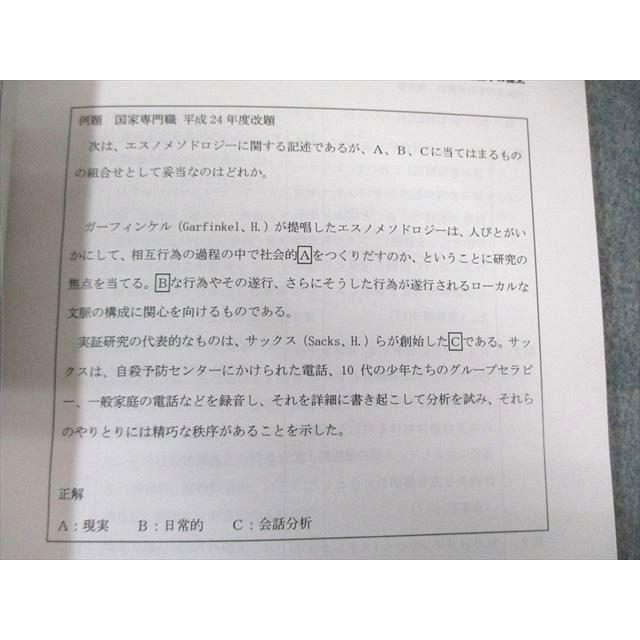 例題 国家専門職 平成24年度改題
次は、エスノメソドロジーに関する記述であるが、A、B、Cに当てはまるもの
の組合せとして妥当なのはどれか。
ガーフィンケル(Garfinkel、H.)が提唱したエスノメソドロジーは、人びとがい
かにして、相互行為の過程の中で社会的Aをつくりだすのか、ということに研究の
焦点を当てる。Bな行為やその遂行、さらにそうした行為が遂行されるローカルな
文脈の構成に関心を向けるものである。
実証研究の代表的なものは、サックス(Sacks、H.)らが創始したCである。サッ
クスは、自殺予防センターにかけられた電話、10 代の少年たちのグループセラピ
ー、一般家庭の電話などを録音し、それを詳細に書き起こして分析を試み、それら
のやりとりには精巧な秩序があることを示した。
正解
A:現実 B:日常的 C:会話分析